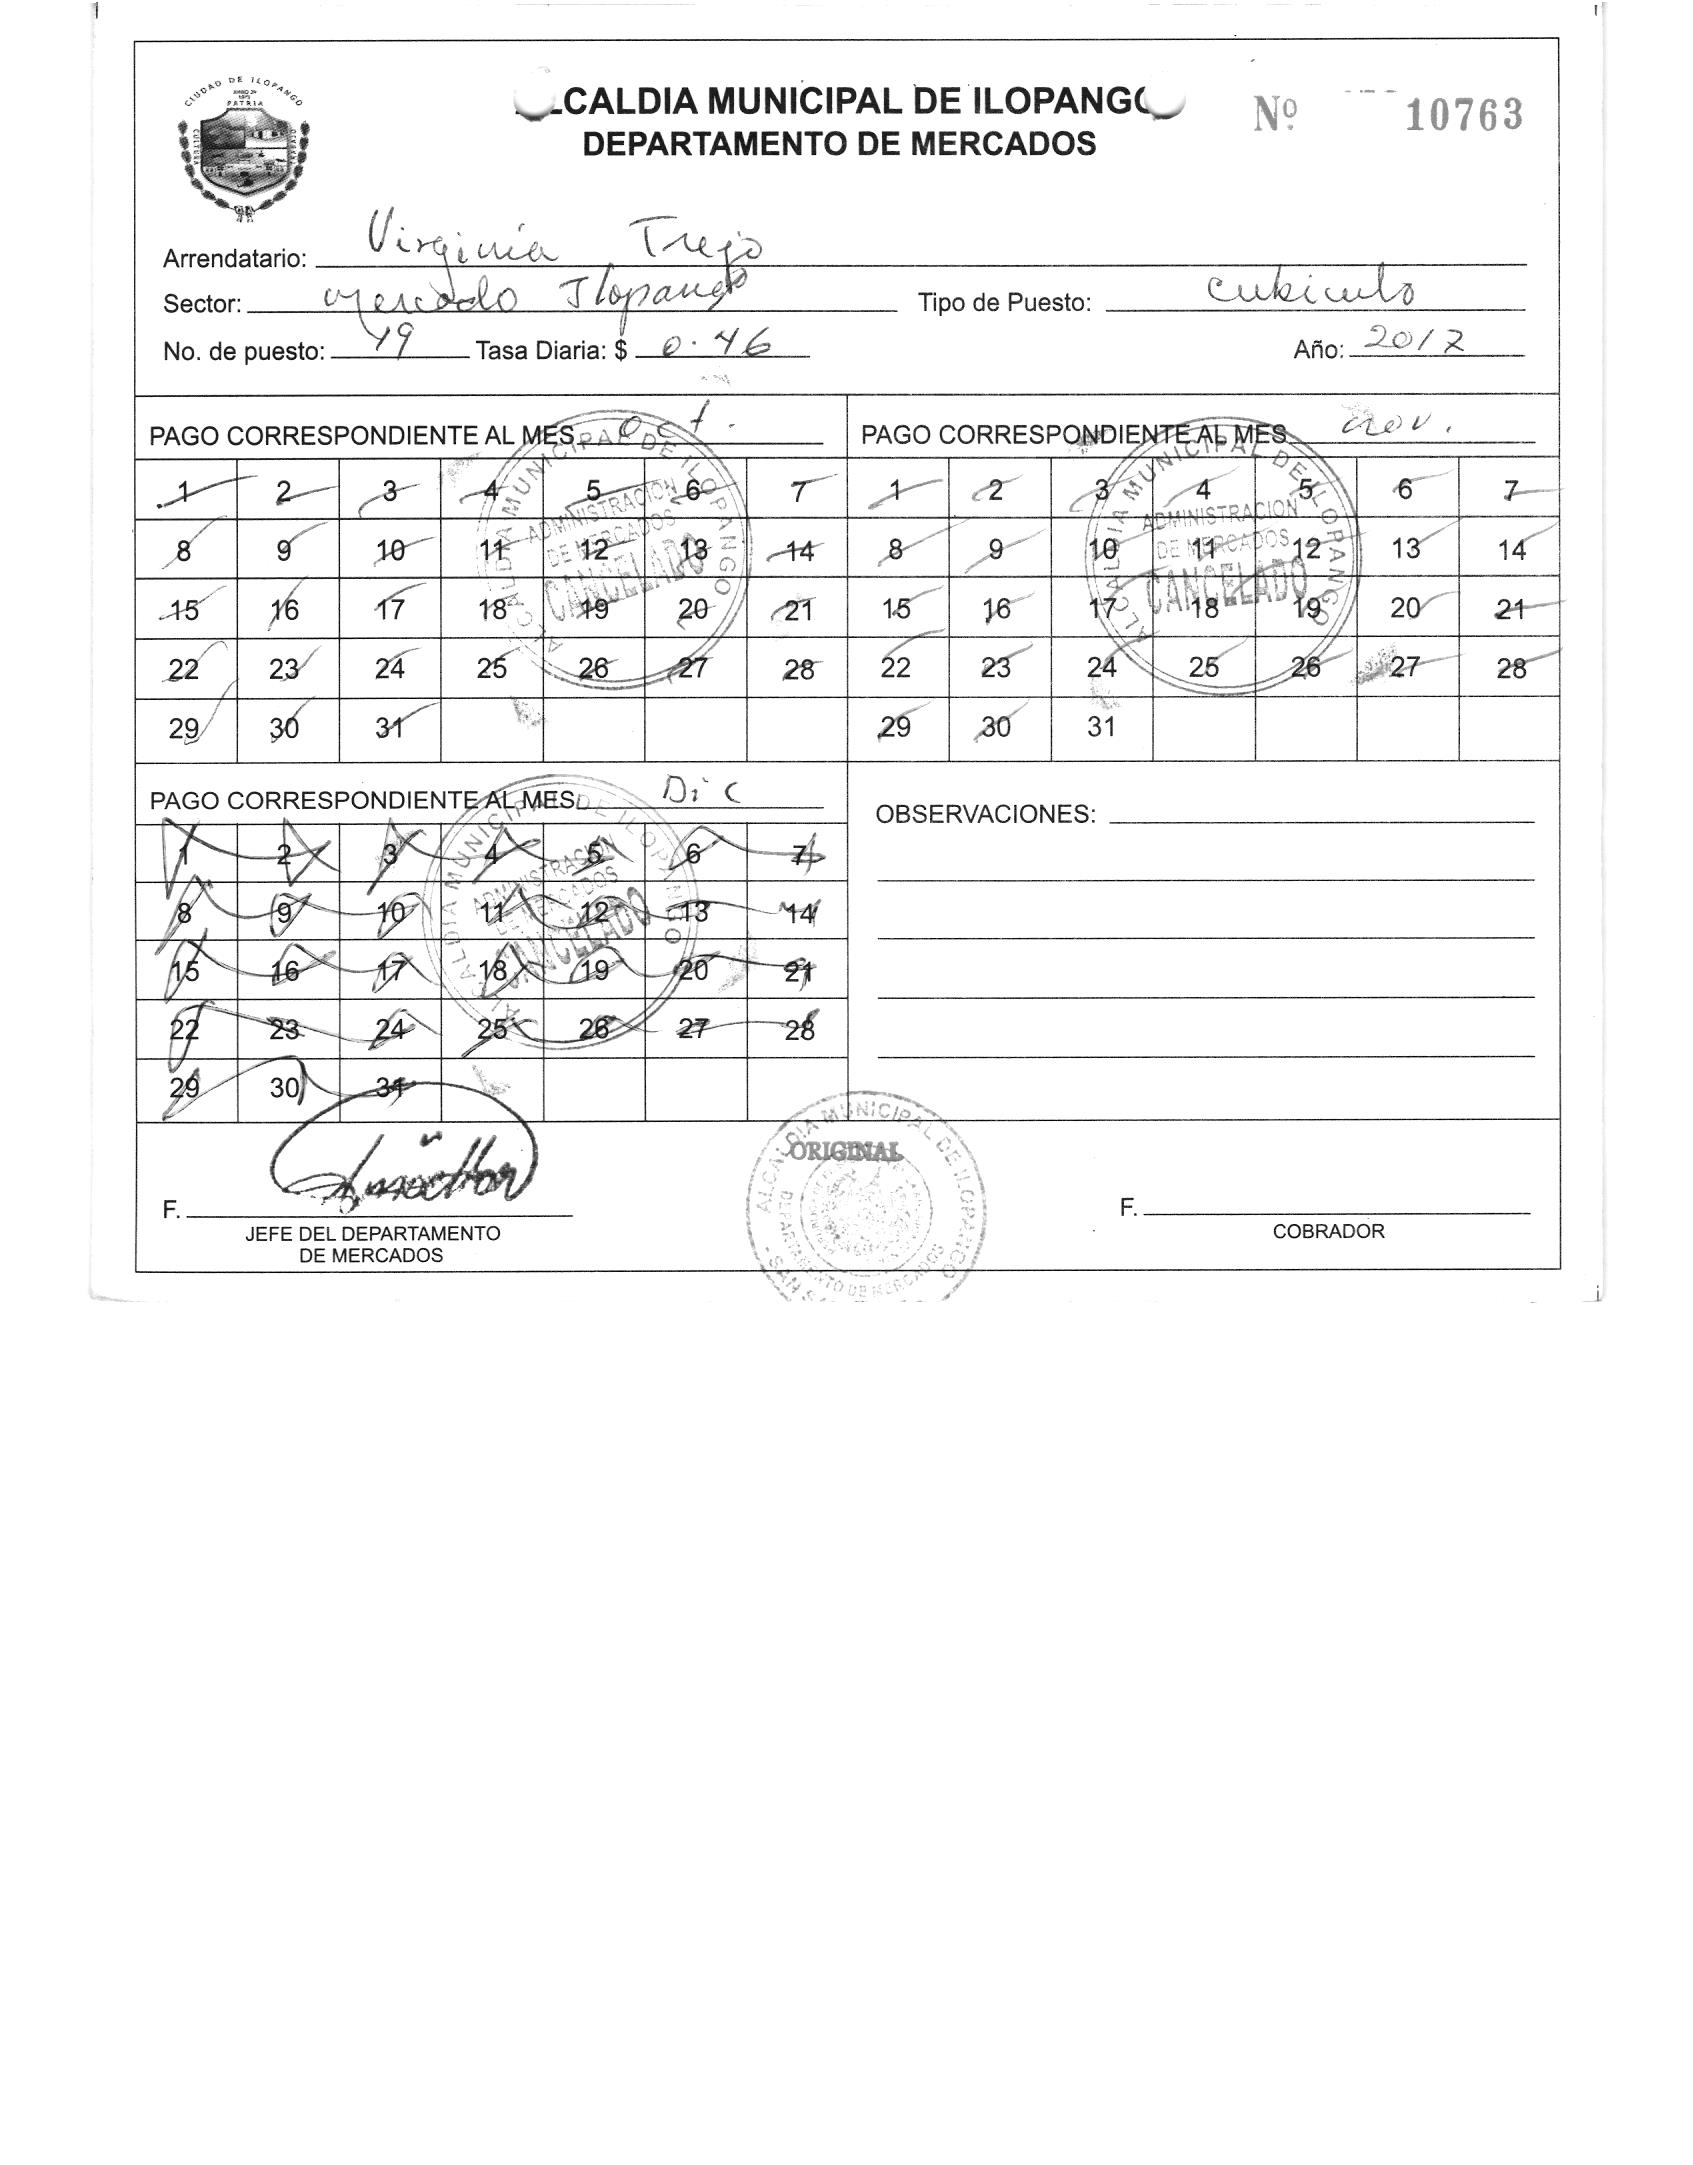 CIUDAD DE ILOPANGO
PATRIA
ALCALDIA MUNICIPAL DE ILOPANGO
DEPARTAMENTO DE MERCADOS
Nº 10763
Arrendatario: Virginia Trejo
Sector: Mercado Ilopango Tipo de Puesto: Cubiculo
No. de puesto: 49 Tasa Diaria: $ 0.46 Año: 2017
PAGO CORRESPONDIENTE AL MES Oct.
1 2 3 4 5 6 7
8 9 10 11 12 13 14
15 16 17 18 19 20 21
22 23 24 25 26 27 28
29 30 31
ALCALDIA MUNICIPAL DE ILOPANGO
ADMINISTRACION
DE MERCADOS
CANCELADO
PAGO CORRESPONDIENTE AL MES Nov.
1 2 3 4 5 6 7
8 9 10 11 12 13 14
15 16 17 18 19 20 21
22 23 24 25 26 27 28
29 30 31
ALCALDIA MUNICIPAL DE ILOPANGO
ADMINISTRACION
DE MERCADOS
CANCELADO
PAGO CORRESPONDIENTE AL MES Dic
1 2 3 4 5 6 7
8 9 10 11 12 13 14
15 16 17 18 19 20 21
22 23 24 25 26 27 28
29 30 31
ALCALDIA MUNICIPAL DE ILOPANGO
ADMINISTRACION
DE MERCADOS
CANCELADO
OBSERVACIONES:
ORIGINAL
ALCALDIA MUNICIPAL DE ILOPANGO
DEPARTAMENTO DE MERCADOS
F.
JEFE DEL DEPARTAMENTO
DE MERCADOS
F.
COBRADOR